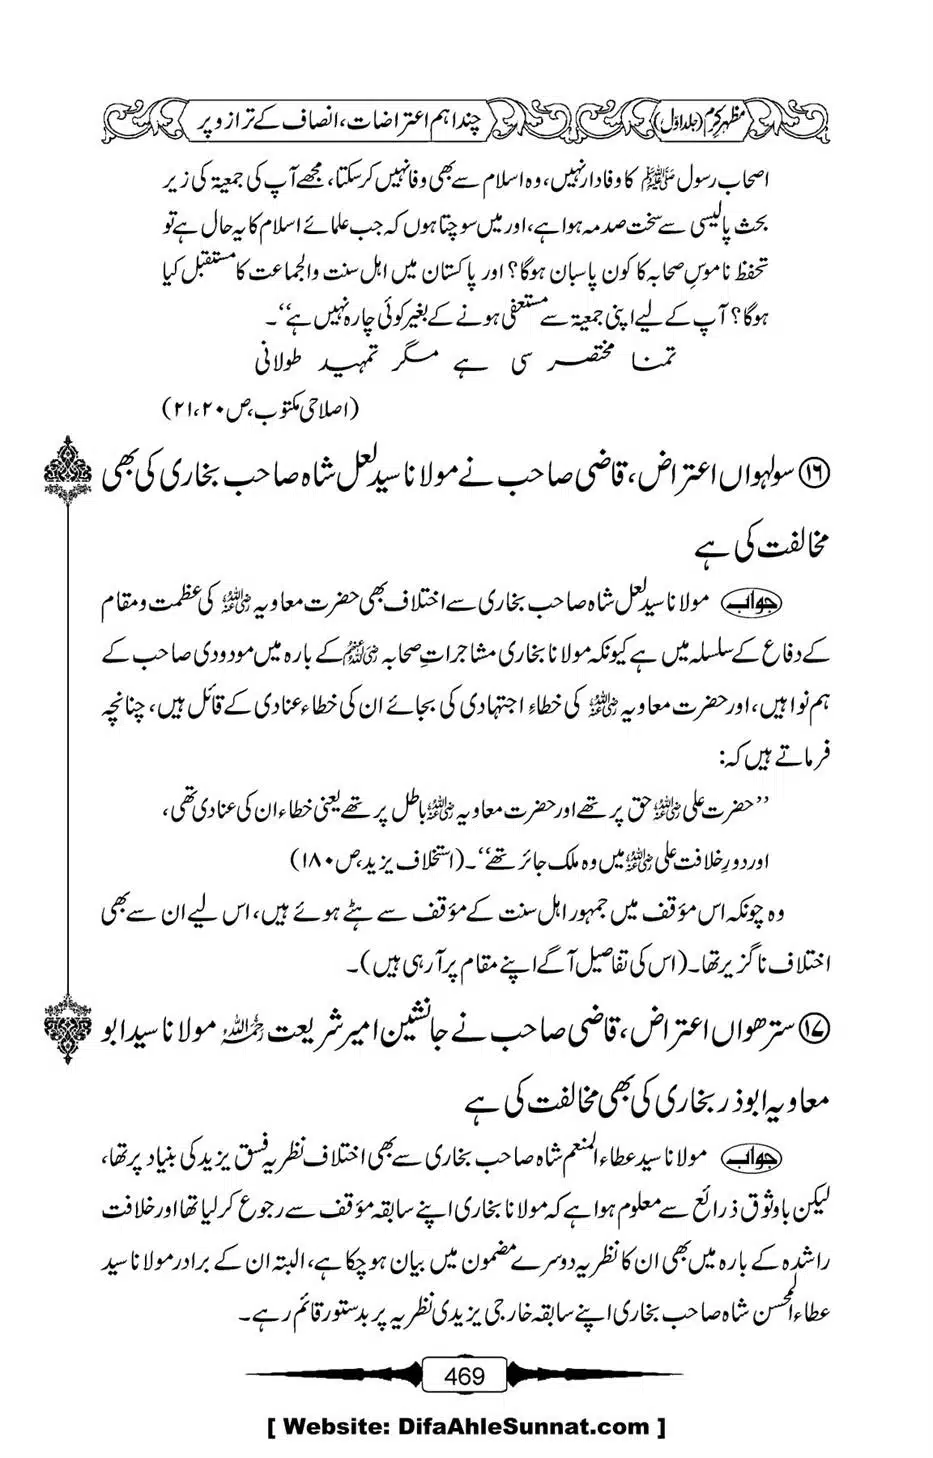 مظہر کرم (جلد اوّل)
چند اہم اعتراضات، انصاف کے ترازو پر
اصحاب رسول ﷺ کا وفادار نہیں، وہ اسلام سے بھی وفا نہیں کرسکتا، مجھے آپ کی جمعیۃ کی زیر
بحث پالیسی سے سخت صدمہ ہوا ہے، اور میں سوچتا ہوں کہ جب علمائے اسلام کا یہ حال ہے تو
تحفظ ناموسِ صحابہ کا کون پاسبان ہوگا؟ اور پاکستان میں اہل سنت والجماعت کا مستقبل کیا
ہوگا؟ آپ کے لیے اپنی جمعیۃ سے مستعفی ہونے کے بغیر کوئی چارہ نہیں ہے‘‘۔
تمنا مختصر سی ہے مگر تمہید طولانی
(اصلاحی مکتوب، ص ۲۰، ۲۱)
⑯ سولہواں اعتراض، قاضی صاحب نے مولانا سید لعل شاہ صاحب بخاری کی بھی
مخالفت کی ہے
جواب مولانا سید لعل شاہ صاحب بخاری سے اختلاف بھی حضرت معاویہ رضی اللہ عنہ کی عظمت و مقام
کے دفاع کے سلسلہ میں ہے کیونکہ مولانا بخاری مشاجراتِ صحابہ رضی اللہ عنہم کے بارہ میں مودودی صاحب کے
ہم نوا ہیں، اور حضرت معاویہ رضی اللہ عنہ کی خطاءِ اجتہادی کی بجائے ان کی خطاء عنادی کے قائل ہیں، چنانچہ
فرماتے ہیں کہ:
’’حضرت علی رضی اللہ عنہ حق پر تھے اور حضرت معاویہ رضی اللہ عنہ باطل پر تھے یعنی خطاء ان کی عنادی تھی،
اور دورِ خلافت علی رضی اللہ عنہ میں وہ ملک جائر تھے‘‘۔ (استخلاف یزید، ص ۱۸۰)
وہ چونکہ اس مؤقف میں جمہور اہل سنت کے مؤقف سے ہٹے ہوئے ہیں، اس لیے ان سے بھی
اختلاف ناگزیر تھا۔ (اس کی تفاصیل آگے اپنے مقام پر آرہی ہیں)۔
⑰ سترھواں اعتراض، قاضی صاحب نے جانشین امیر شریعت رحمہ اللہ مولانا سید ابو
معاویہ ابوذر بخاری کی بھی مخالفت کی ہے
جواب مولانا سید عطاء المنعم شاہ صاحب بخاری سے بھی اختلاف نظریہ فسق یزید کی بنیاد پر تھا،
لیکن باوثوق ذرائع سے معلوم ہوا ہے کہ مولانا بخاری اپنے سابقہ مؤقف سے رجوع کرلیا تھا اور خلافت
راشدہ کے بارہ میں بھی ان کا نظریہ دوسرے مضمون میں بیان ہو چکا ہے، البتہ ان کے برادر مولانا سید
عطاء المحسن شاہ صاحب بخاری اپنے سابقہ خارجی یزیدی نظریہ پر بدستور قائم رہے۔
469
[ Website: DifaAhleSunnat.com ]